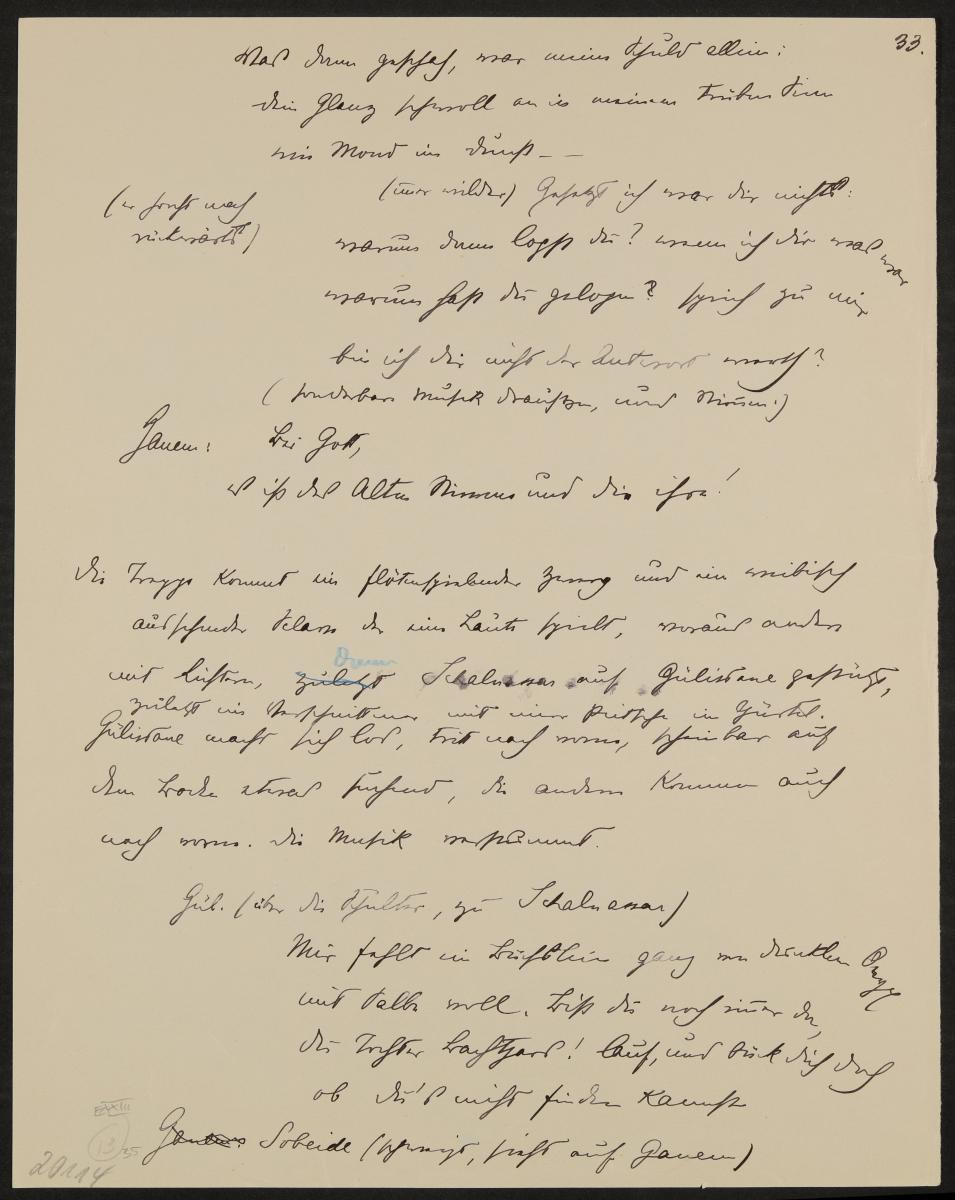 33.
Was dann geschah, war meine Schuld allein:
dein Glanz schwoll an in meinem trüben Sinn
wie Mond im Dunst – –
(im̅er wilder) Gesetzt ich war dir nichts:
(er horcht nach
rückwärts)
warum dann logst du? wenn ich dir was war
warum hast du gelogen? sprich zu mir
bin ich dir nicht der Antwort werth?
(sonderbare Musik draußen, und Stimmen:)
Ganem: Bei Gott,
es ist des Alten Stimme und die ihre!
Die Treppe kommt ein flötenspielender Zwerg und ein weibisch
aussehender Sclave der eine Laute spielt, voraus andere
mit Lichtern, zuletzt Schalnassar auf Gülistane gestützt,
Dann
zuletzt ein Verschnittener mit einer Peitsche im Gürtel.
Gülistane macht sich los, tritt nach vorne, scheinbar auf
dem Boden etwas suchend, die andern kommen auch
nach vorne. Die Musik verstummt.
Gül. (über die Schulter, zu Schalnassar)
Mir fehlt ein Büchslein ganz von dunklem Onyx
mit Salbe voll. Bist du noch im̅er da,
du Tochter Bachtjars! lauf, und bück dich doch
ob du's nicht finden kannst
Ganem: Sobeide (schweigt, sieht auf Ganem)
EXXIII
13
35
20114